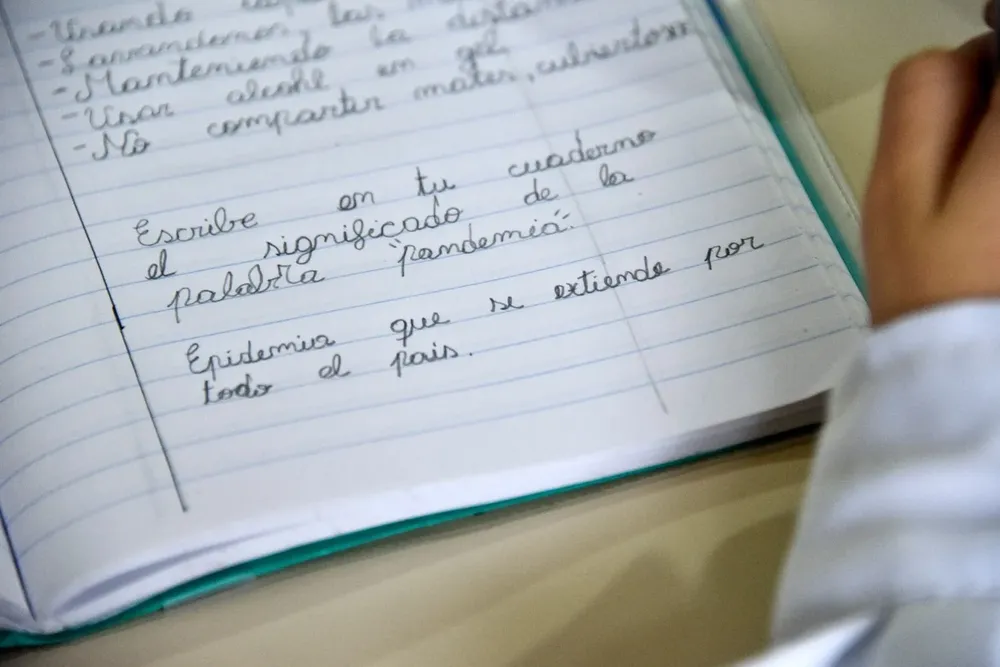 - Usando
- Lavandonos las
- Manteniendo la distan
- Usar alcohl en gel
- No compartir mates, cubiertos
Escribe en tu cuaderno
el significado de la
palabra "pandemia".
Epidemia que se extiende por
todo el pais.